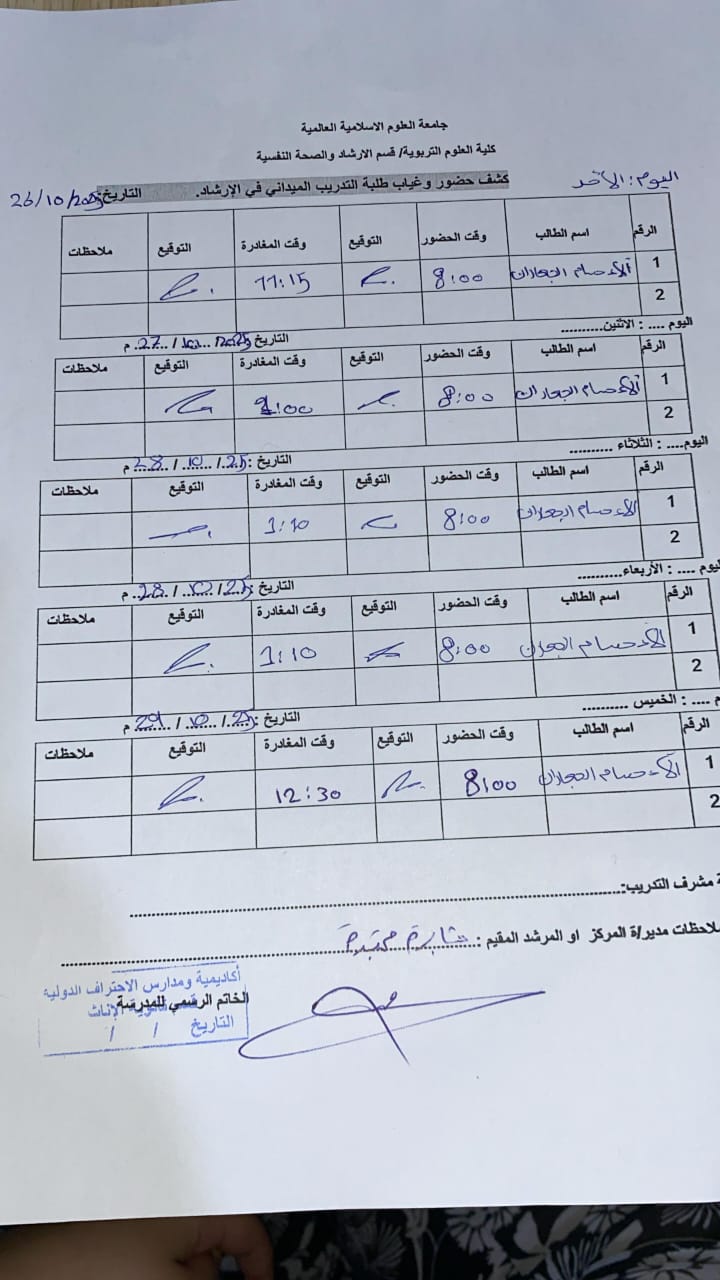 جامعة العلوم الاسلامية العالمية
كلية العلوم التربوية/ قسم الارشاد والصحة النفسية
اليوم: الأحد
كشف حضور وغياب طلبة التدريب الميداني في الإرشاد. التاريخ: 26/10/2025
الرقم اسم الطالب وقت الحضور التوقيع وقت المغادرة التوقيع ملاحظات
1 حسام 8:00 11:15
2
اليوم .... : الاثنين.......... التاريخ 27. / 10 / 2025 م
الرقم اسم الطالب وقت الحضور التوقيع وقت المغادرة التوقيع ملاحظات
1 حسام 8:00 1:00
2
اليوم.... : الثلاثاء .......... التاريخ :25. / 10 / 28 م
الرقم اسم الطالب وقت الحضور التوقيع وقت المغادرة التوقيع ملاحظات
1 حسام 8:00 1:10
2
اليوم .... : الأربعاء.......... التاريخ :25 / 10 / 28 م
الرقم اسم الطالب وقت الحضور التوقيع وقت المغادرة التوقيع ملاحظات
1 حسام 8:00 1:10
2
م .... : الخميس .......... التاريخ :25 / 10 / 29 م
الرقم اسم الطالب وقت الحضور التوقيع وقت المغادرة التوقيع ملاحظات
1 حسام 8:00 12:30
2
ة مشرف التدريب:
لاحظات مدير/ة المركز او المرشد المقيم :
أكاديمية ومدارس الاحتراف الدولية
الخاتم الرسمي للمدرسة
الإناث
التاريخ / /